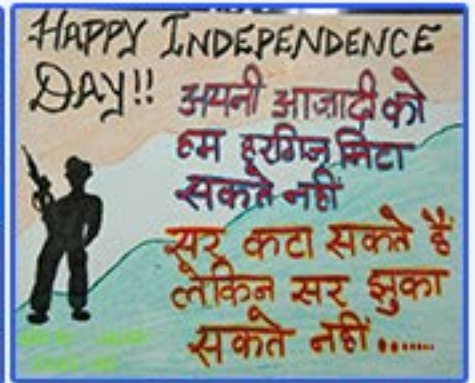 HAPPY INDEPENDENCE
DAY!!
अपनी आजादी को
हम हरगिज मिटा
सकते नहीं
सर कटा सकते हैं
लेकिन सर झुका
सकते नहीं......